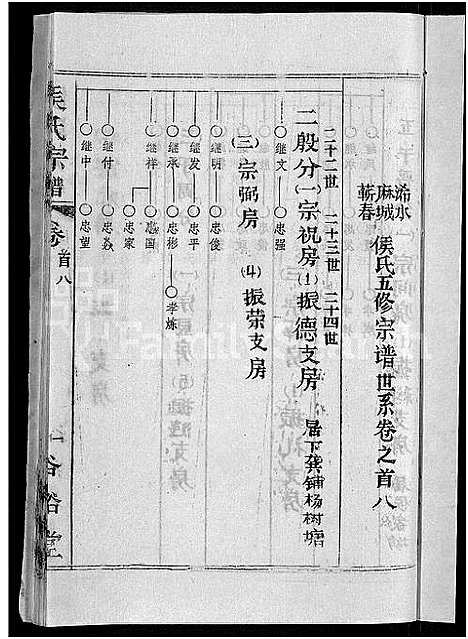 浠水
麻城
蕲春
侯氏五修宗谱世系卷之首八
二十二世　二十三世　二十四世
二股分㈠宗祝房⑴振德支房　居下龚铺杨树塘
继文　忠强
㈢宗弼房　⑷振荣支房
继明　忠俊
继发　忠平
继承　忠彬　李炼
继祥　忠国
忠家
继付　忠焱
继中　忠望
侯氏宗谱　卷首八